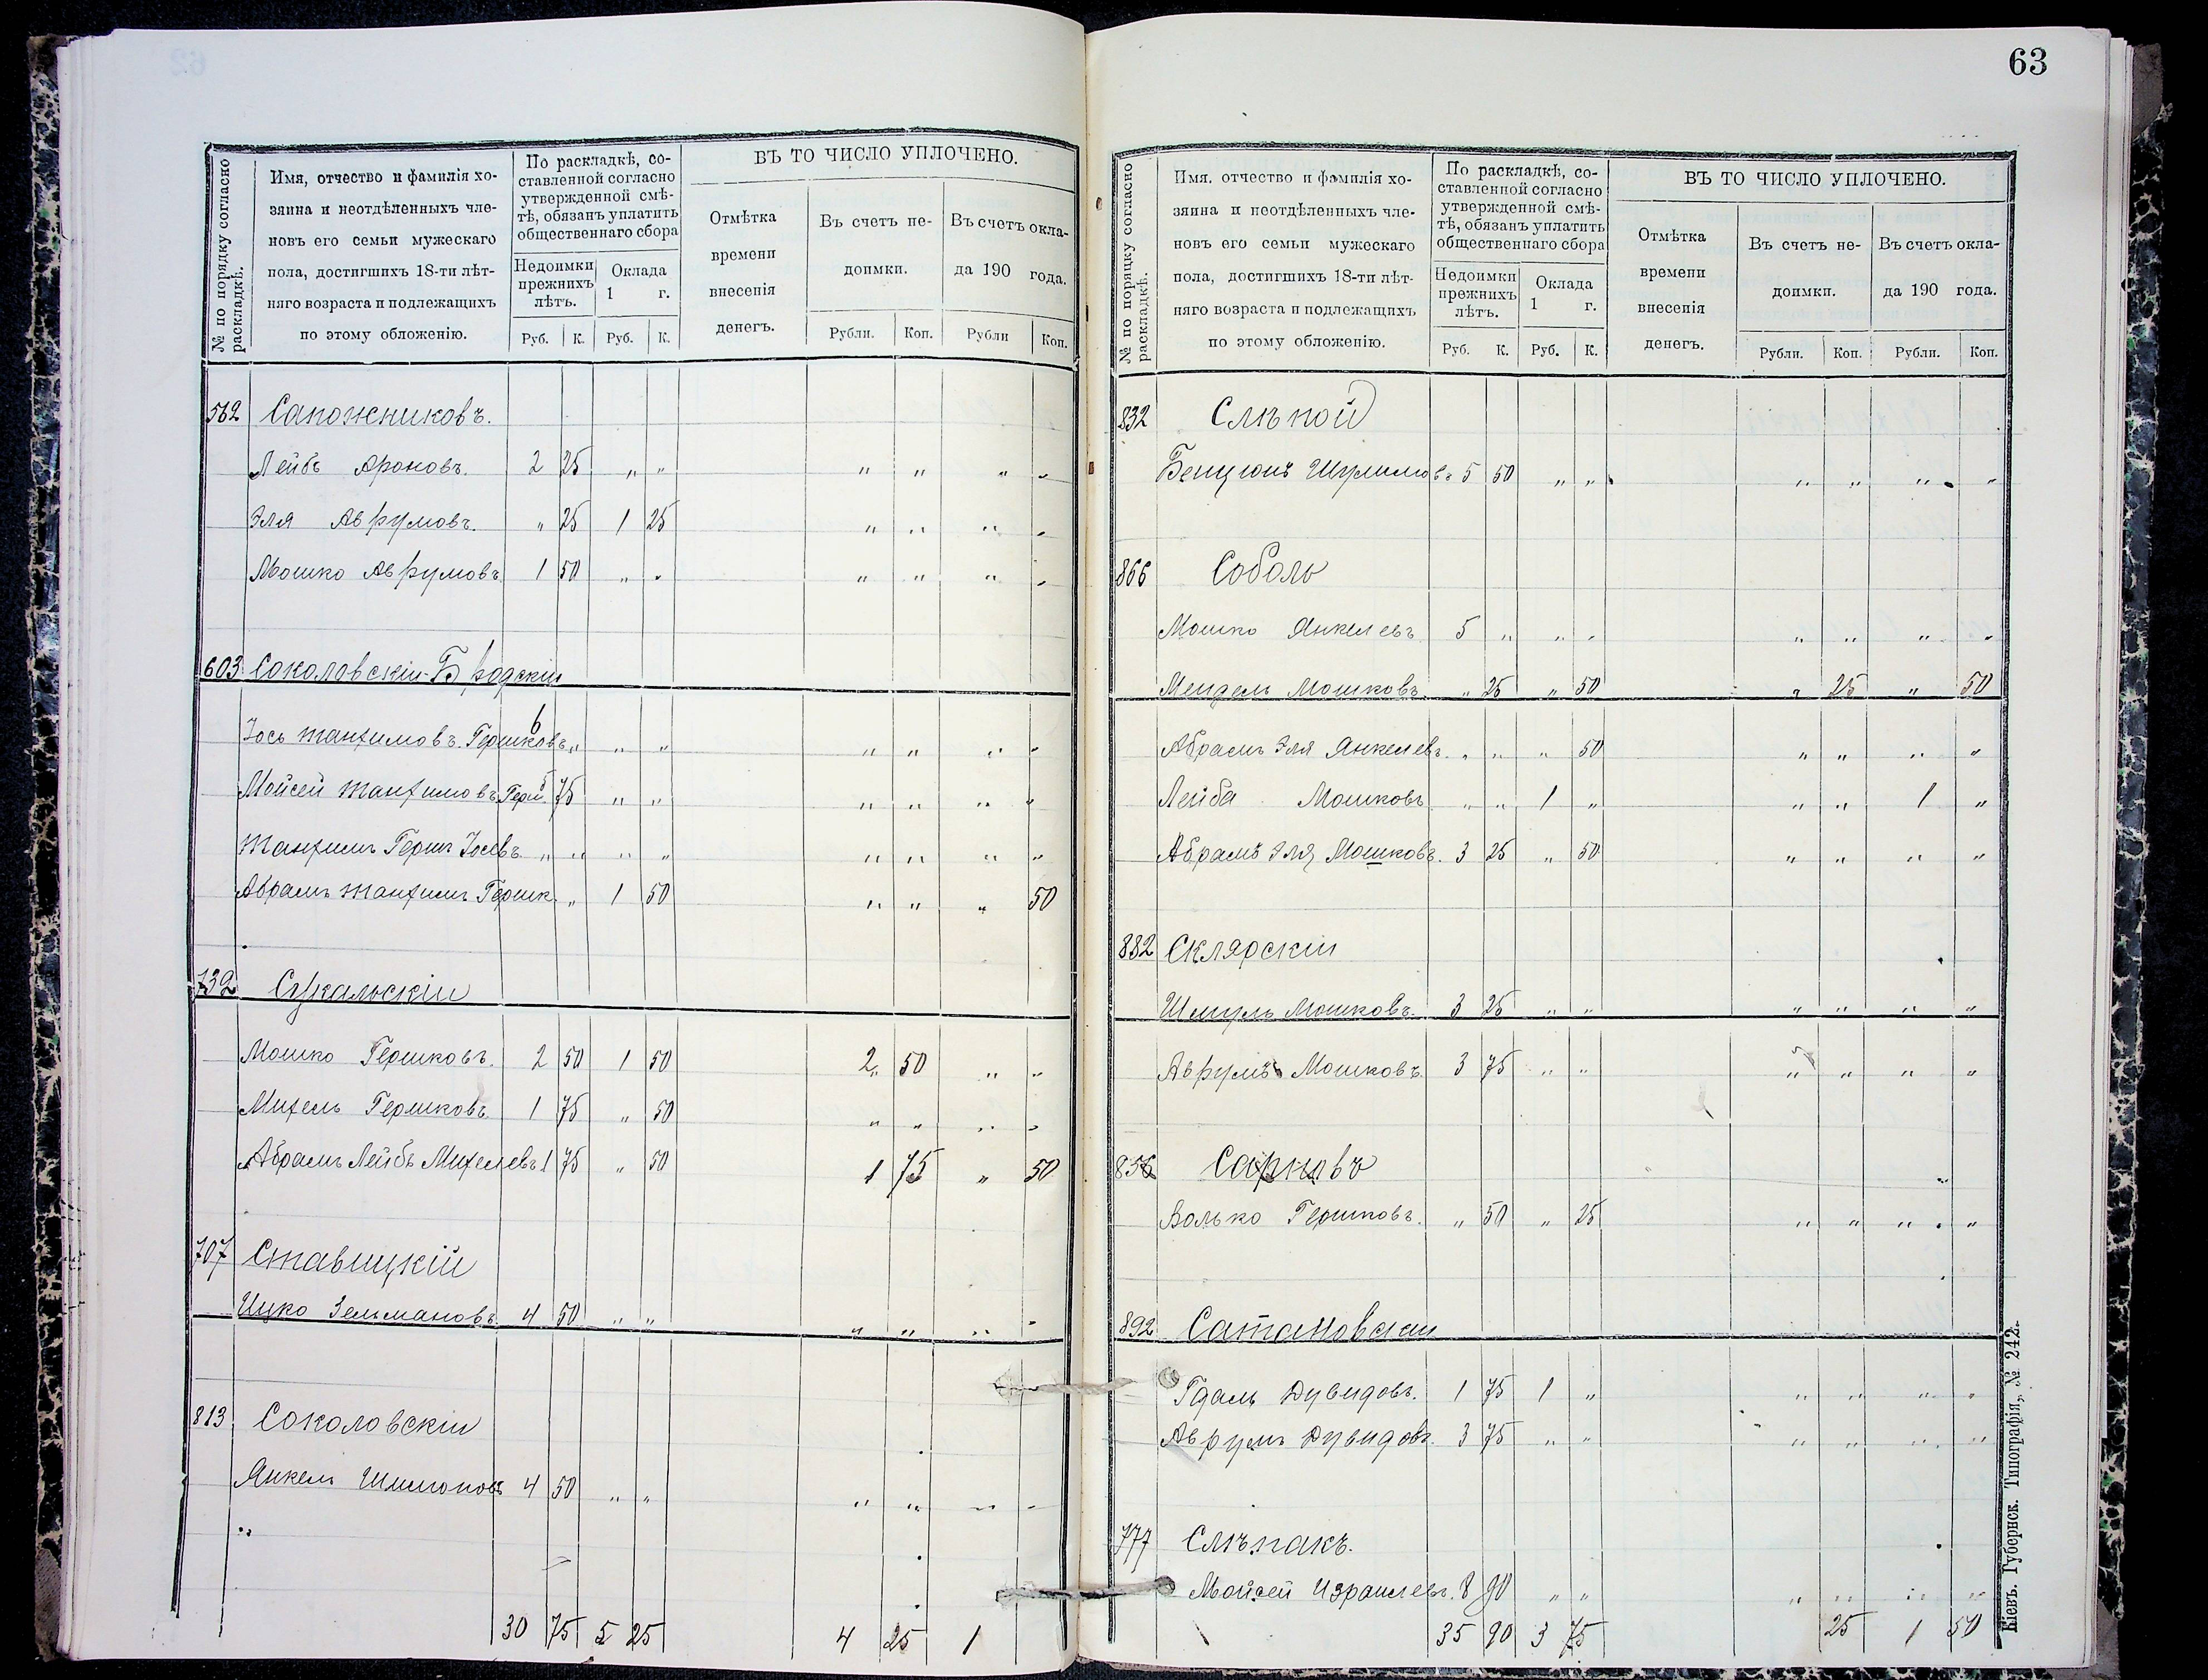 63
№ по порядку согласно раскладкѣ.
Имя, отчество и фамилія хо-
зяина и неотдѣленныхъ чле-
новъ его семьи мужескаго
пола, достигшихъ 18-ти лѣт-
няго возраста и подлежащихъ
по этому обложенію.
По раскладкѣ, со-
ставленной согласно
утвержденной смѣ-
тѣ, обязанъ уплатить
общественнаго сбора
Недоимки прежнихъ лѣтъ.
Оклада 1 г.
Руб. К. Руб. К.
ВЪ ТО ЧИСЛО УПЛОЧЕНО.
Отмѣтка
времени
внесенія
денегъ.
Въ счетъ не-
доимки.
Въ счетъ окла-
да 190 года.
Рубли. Коп. Рубли Коп.
562 Сапожниковъ.
Лейбъ Ароновъ. 2 25 „ „ „ „ „ „
Эля Аврумовъ. „ 25 1 25 „ „ „ „
Мошко Аврумовъ 1 50 „ „ „ „ „ „
603. Соколовскіи-Бродскіи
Іось Танхимовъ. Гершковъ 6 „ „ „ „ „ „ „
Мойсей Танхимовъ Герш. 5 75 „ „ „ „ „ „
Танхимъ Гершъ Іосевъ. „ „ „ „ „ „ „ „
Абрамъ Танхимъ Гершк. „ 1 50 „ „ „ 50
732 Сукальскіи
Мошко Гершковъ. 2 50 1 50 2„ 50 „ „
Михель Гершковъ 1 75 „ 50 „ „ „ „
Абрамъ Лейбъ Михелевъ 1 75 „ 50 1 75 „ 50
707 Ставицкій
Ицко Зельмановъ 4 50 „ „ „ „ „ „
813. Соколовскіи
Янкель Шимоновъ 4 50 „ „ „ „ „ „
30 75 5 25 4 25 1
№ по порядку согласно раскладкѣ.
Имя. отчество и фамилія хо-
зяина и неотдѣленныхъ чле-
новъ его семьи мужескаго
пола, достигшихъ 18-ти лѣт-
няго возраста и подлежащихъ
по этому обложенію.
По раскладкѣ, со-
ставленной согласно
утвержденной смѣ-
тѣ, обязанъ уплатить
общественнаго сбора
Недоимки прежнихъ лѣтъ.
Оклада 1 г.
Руб. К. Руб. К.
ВЪ ТО ЧИСЛО УПЛОЧЕНО.
Отмѣтка
времени
внесенія
денегъ.
Въ счетъ не-
доимки.
Въ счетъ окла-
да 190 года.
Рубли. Коп. Рубли. Коп.
832 Слѣпой
Бенционъ Шулимовъ 5 50 „ „ „ „ „ „
866 Соболь
Мошко Янкелевъ 5 „ „ „ „ „ „ „
Мендель Мошковъ. „ 25 „ 50 „ 25 „ 50
Абрамъ Эля Янкелевъ. „ „ „ 50 „ „ „ „
Лейба Мошковъ „ „ 1 „ „ „ 1 „
Абрамъ Эля Мошковъ. 3 25 „ 50 „ „ „ „
882 Склярскіи
Шмуль Мошковъ. 3 25 „ „ „ „ „ „
Аврумъ Мошковъ. 3 75 „ „ „ „ „ „
856 Сарновъ
Волько Гершковъ. „ 50 „ 25 „ „ „ „
892 Сатановскіи
Гдаль Дувидовъ. 1 75 1 „ „ „ „ „
Аврумъ Дувидовъ. 3 75 „ „ „ „ „ „
777 Слѣпакъ.
Мойсей Израилевъ. 8 90 „ „ „ „ „ „
35 90 3 75 25 1 50
Кіевъ. Губернск. Типографія, № 242.